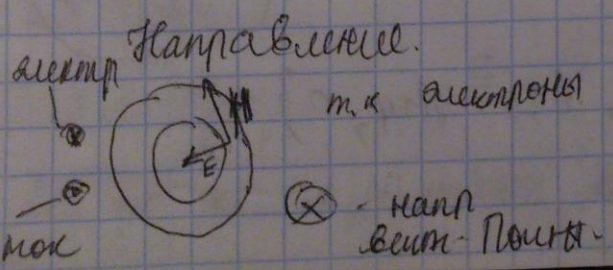 Направление.
электр
т.к электроны
H
E
ток
- напр
вект. Пойнт.